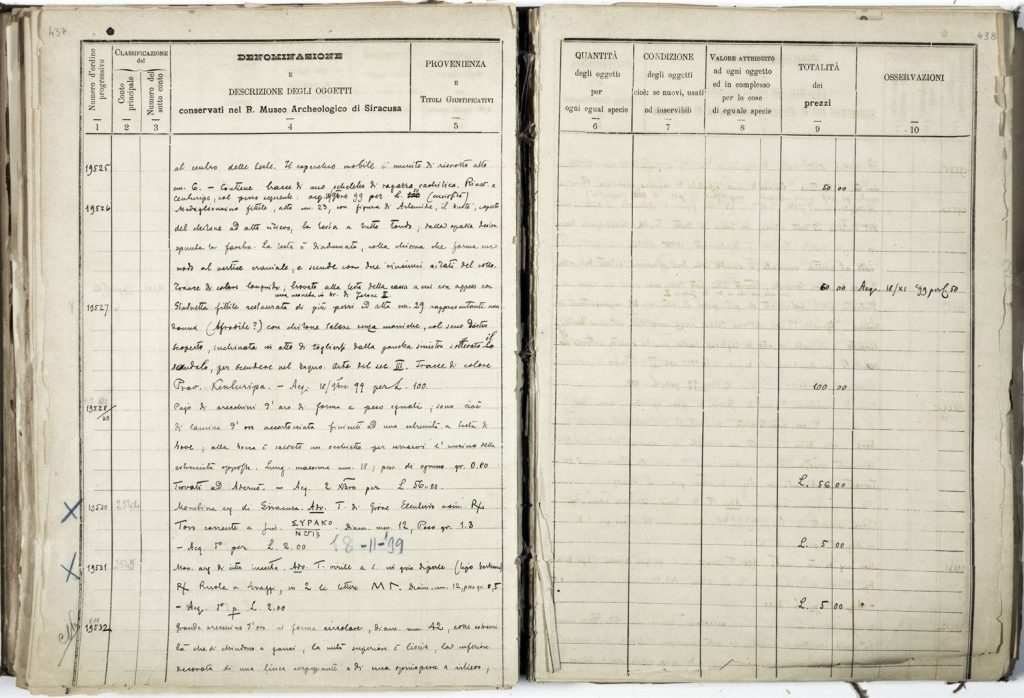 437
Numero d'ordine progressivo
CLASSIFICAZIONE del
Conto principale
Numero del sotto conto
DENOMINAZIONE
E
DESCRIZIONE DEGLI OGGETTI
conservati nel R. Museo Archeologico di Siracusa
PROVENIENZA
E
TITOLI GIUSTIFICATIVI
1 2 3 4 5
19525 al centro delle teste. Il coperchio mobile è munito di risvolto alto
cm. 6. - Contiene tracce di uno scheletro di ragazza rachitica. Rinv. a
Centuripe, col pezzo seguente: acq. 99 per L.
19526 Medaglioncino fittile, alto cm. 23, con figura di Artemide, il busto, coperto
del chitone ad alto rilievo, la testa a tutto tondo; dalla spalla destra
spunta la faretra. La testa è diademata, colla chioma che forma un
nodo al vertice craniale, e scende con due cincinni ai lati del collo.
Tracce di colore; trovato alla testa della cassa a mi era appeso con
una moneta in br. di Jerone II.
19527 Statuetta fittile restaurata di più pezzi ed alta cm. 29 rappresentante una
donna (Afrodite?) con chitone talare senza maniche, col seno destro
scoperto, inclinata in atto di togliersi dalla gamba sinistra sollevata il
sandalo, per scendere nel bagno. Arte del sec. III. Tracce di colore
Prov. Kenturipa. - Acq. 18/9bre 99 per L. 100.
19528/29 Pajo di orecchini d'oro di forma e peso eguali, sono cioè
di lamina d'oro accartocciata finiente ad una estremità a testa di
bove; alla bocca è saldato un occhietto per serrarvi l'uncino della
estremità opposta. Lung. massima mm. 18; peso di ognuno gr. 0.80
Trovati ad Adernò. - Acq. 2 Xbre per L. 56.00.
X 19530 2544 Monetina arg. di Siracusa. Adv. T. di Giove Eleuterio Rx
Toro corrente a ΣΥΡΑΚΟ Diam. mm. 12, Peso gr. 1.3
- Acq. 1° per L. 2.00 18-11-'99
X 19531 2545 Mon. arg. di città incerta. Adv. T. virile a s.
Rx Ruota a 4 raggi, in 2 le lettere ΜΓ. Diam. mm. 12, peso gr. 0,5
- Acq. 1° p. L. 2.00
19532 Grande orecchino d'oro di forma circolare, diam. mm. 42, colle estremi
tà che si chiudono a ganci, la metà superiore è liscia, la inferiore
decorata di una linea serpeggiante e di una
438
QUANTITÀ
degli oggetti
per
ogni egual specie
CONDIZIONE
degli oggetti
cioè: se nuovi, usati
od inservibili
VALORE ATTRIBUITO
ad ogni oggetto
ed in complesso
per le cose
di eguale specie
TOTALITÀ
dei
prezzi
OSSERVAZIONI
6 7 8 9 10
50 00
60 00 Acq. 18/XI '99 per L. 50
100 00
L. 56 00
L. 5 00
L. 5 00